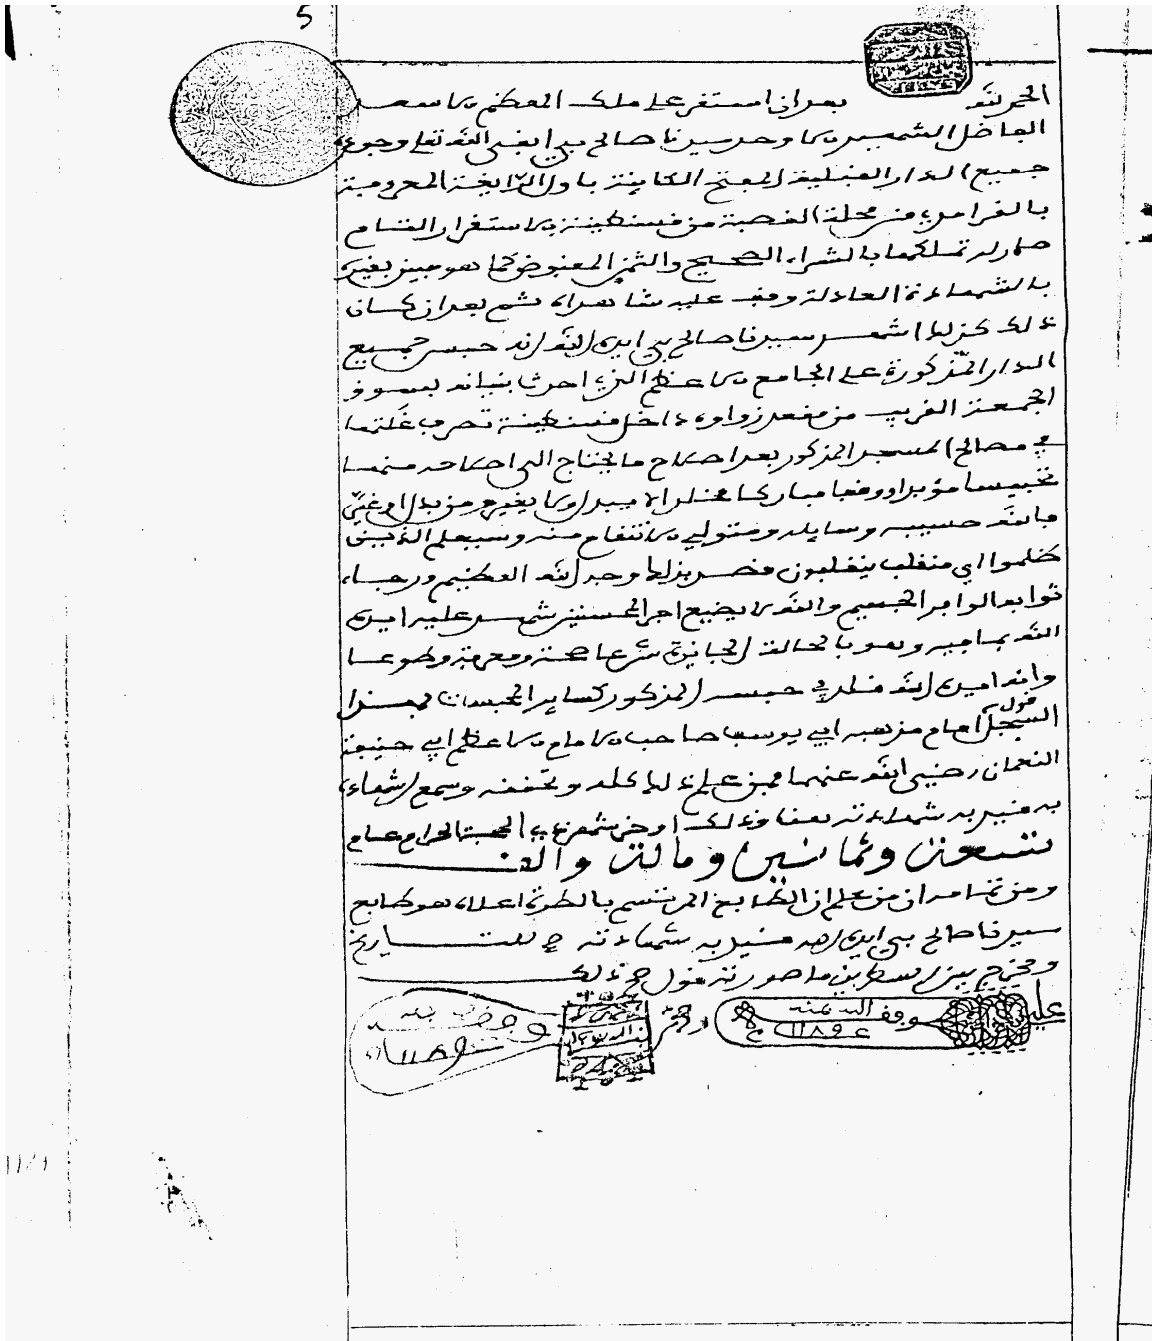 5
الحمد لله بعد ان استقر على ملك المعظم الاسعد
الفاضل الشهير الاوحد سيدنا صالح باي ابقى الله تعلى وجوده
جميع الدار القبلية المفتح الكاينة باول الزايغة المعروفة
بالقرامي من محلة القصبة من قسنطينة الاستقرار التام
صار له تملكها بالشراء الصحيح والثمن المقبوض كما هو مبين بغيره
بالشهادة العادلة وقف عليه شاهداه ثم بعد ان كان
ذلك كذلك اشهد سيدنا صالح باي ايده الله انه حبس جميع
الدار المذكورة على الجامع الاعظم الذي احدث بنيانه بسوق
الجمعة القريب من مقعد زواوه داخل قسنطينة تصرف غلتها
في مصالح المسجد المذكور بعد اصلاح ما يحتاج الى اصلاحه منها
تحبيسا مؤبدا ووقفا مباركا مخلدا لا يبدل ولا يغير ومن بدل او غير
فالله حسيبه وسايله ومتولي الانتقام منه وسيعلم الذين
ظلموا اي منقلب ينقلبون قصد بذلك وجه الله العظيم ورجاء
ثوابه الوافر الجسيم والله لا يضيع اجر المحسنين شهد عليه ايده
الله بما فيه وهو بالحالة الجائزة شرعا صحة ومعرفة وطوعا
وانه ايده الله قلد في حبسه المذكور كساير المحبسات بهذا
السجل قول امام مذهبه ابي يوسف صاحب الامام الاعظم ابي حنيفة
النعمان رضي الله عنهما فمن علم ذلك كله وتحققه وسمع الاشهاد
به قيد به شهادته هنا وذلك اوخر شهر ذي الحجة الحرام عام
تسعة وثمانين وماية والف
ومن تمامه ان من علم ان الطابع المرتسم بالطرة اعلاه هو طابع
سيدنا صالح باي ايده الله قيد به شهادته في التاريخ
ومخرج بين السطرين ما صورته قول صح ذلك
عليه
وفقه الله بمنه
عـ ١١٨٩ ـام